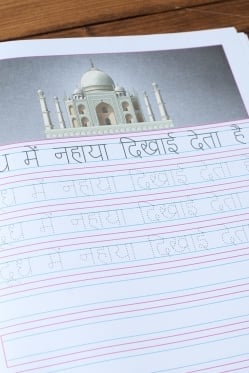 में नहाया दिखाई देता है
में नहाया दिखाई देता
में नहाया दिखाई देता
दूध में नहाया दिखाई देता